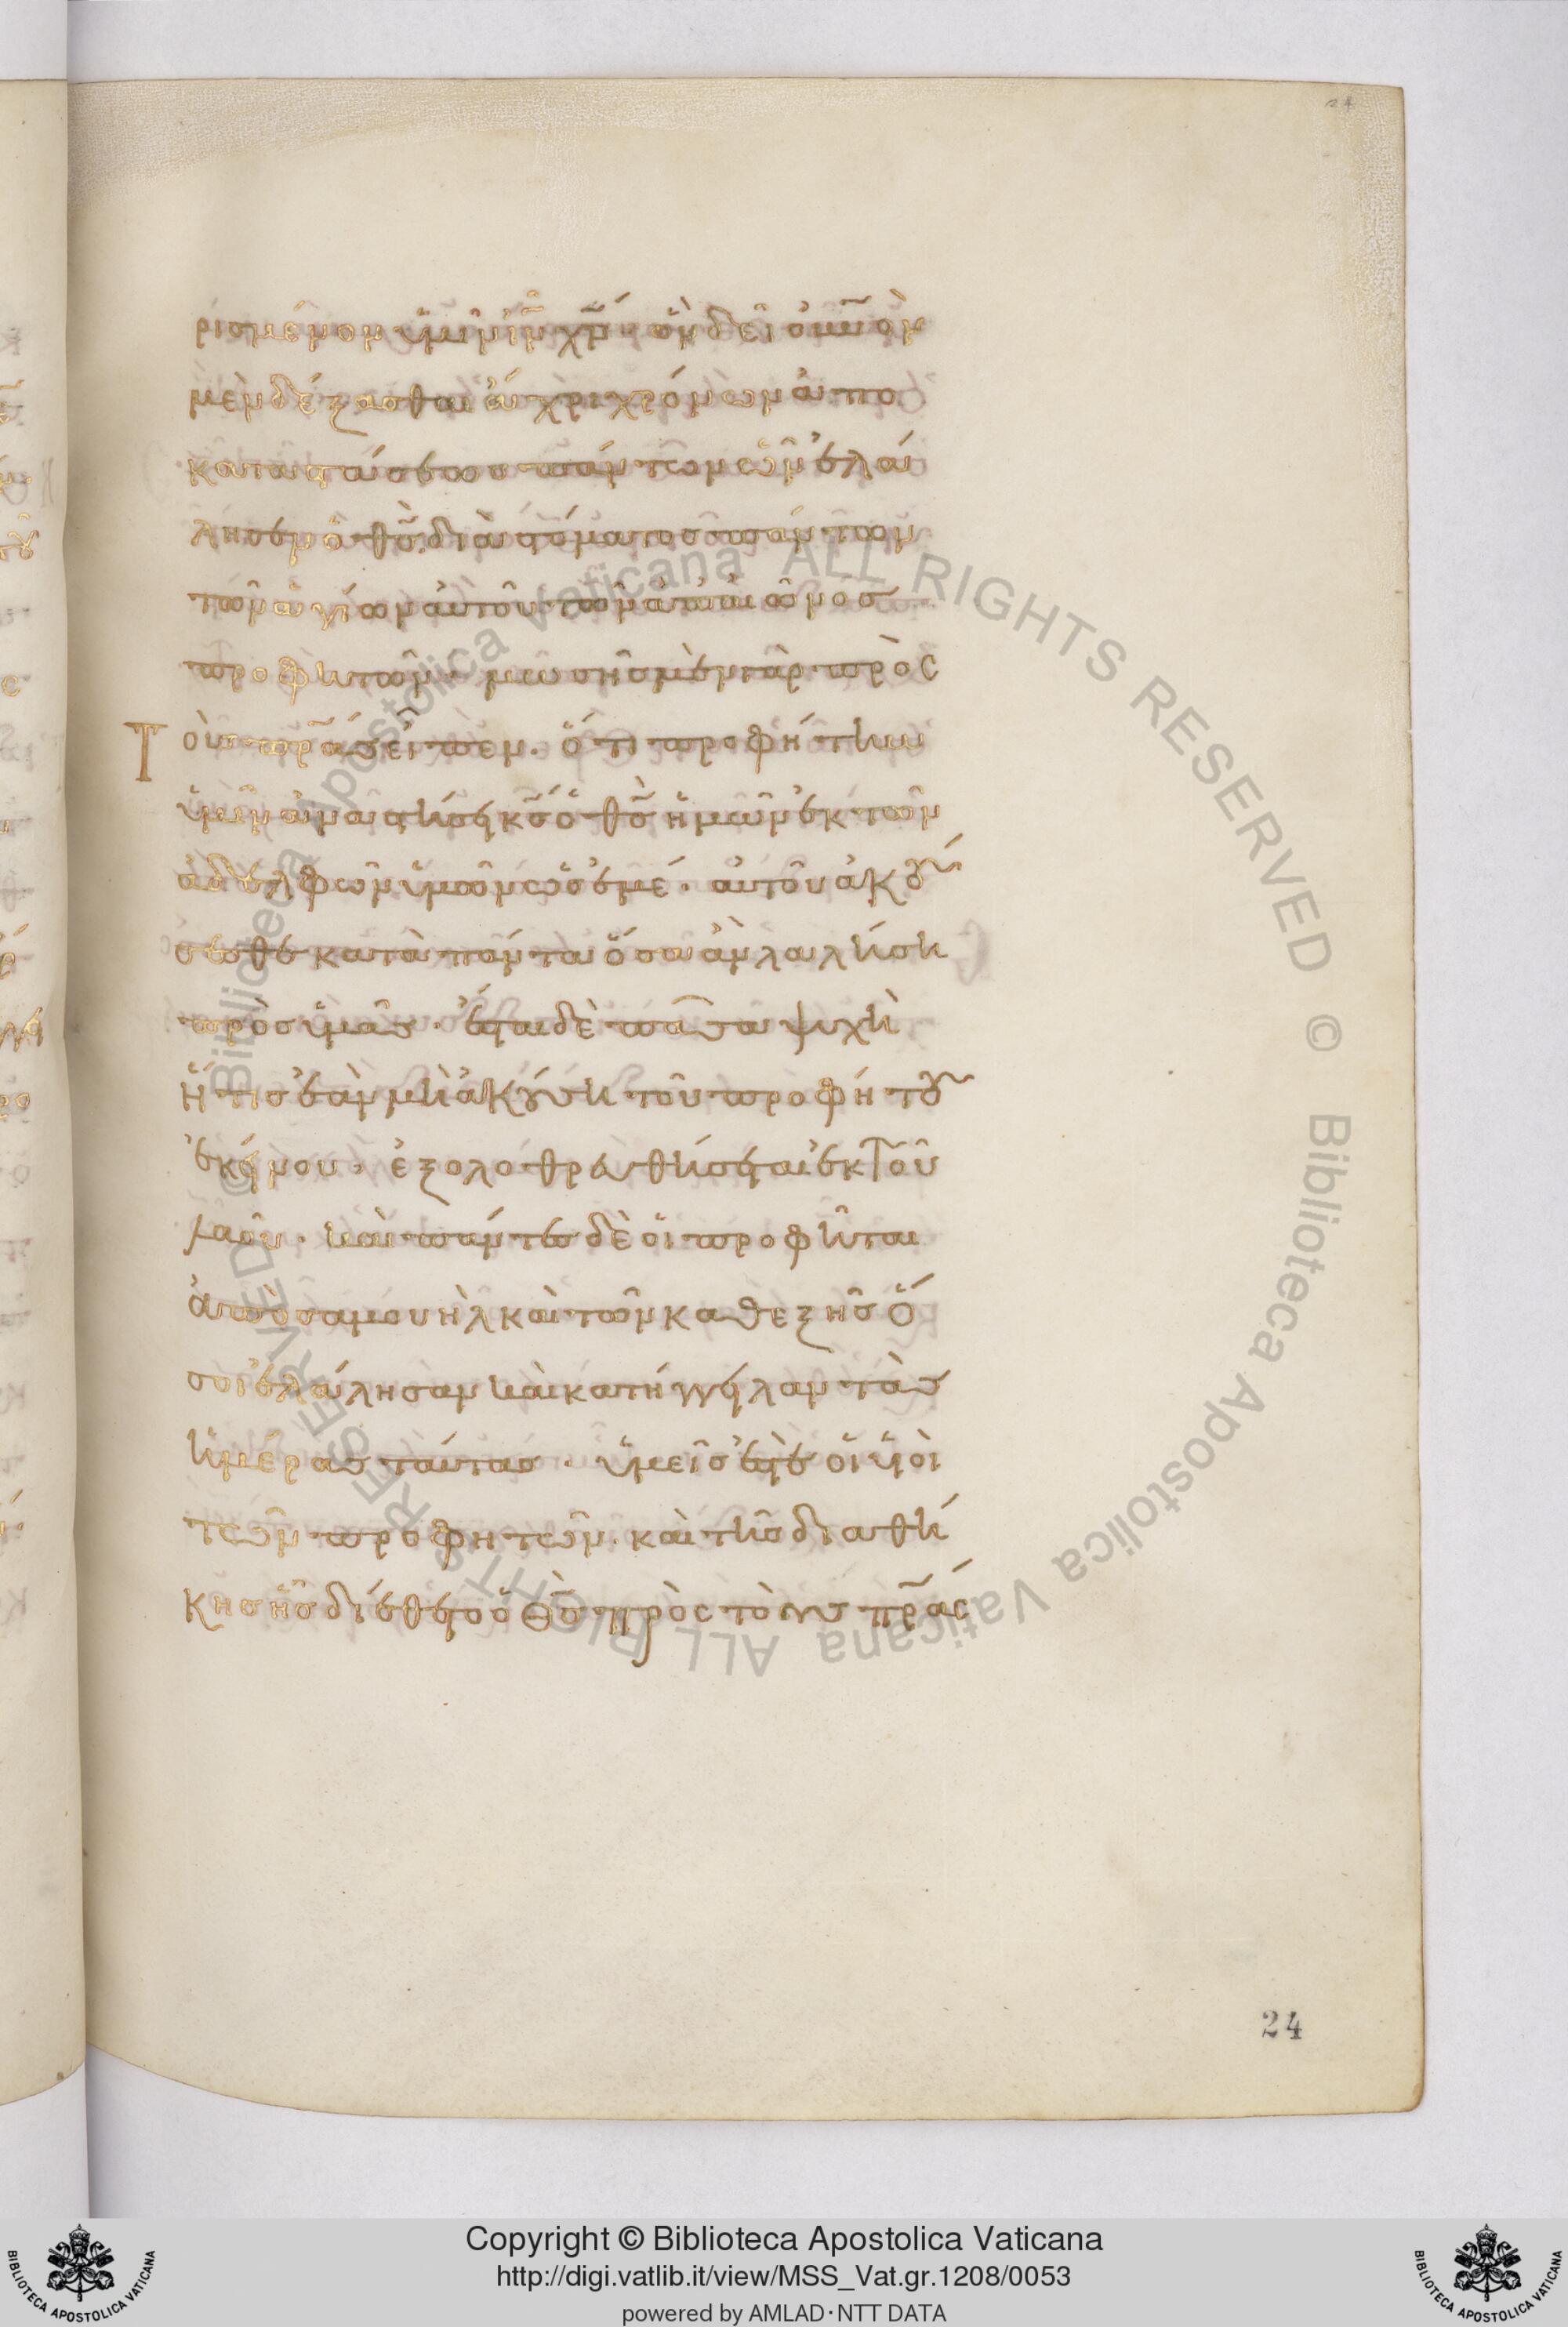 24
ρισμένον ὑμῖν ἰν χν· ὃν δεῖ οὐνὸν
μὲν δέξασθαι ἄχρι χρόνων ἀπο
καταστάσεως πάντων ὧν ἐλά
λησεν ὁ θς διὰ στόματος πάντων
τῶν ἁγίων αὐτοῦ τῶν ἀπ' αἰῶνος
προφητῶν· μωσῆς μὲν γὰρ πρὸς
Τοὺς πρας εἶπεν· ὅτι προφήτην
ὑμῖν ἀναστήσει κς ὁ θς ἡμῶν ἐκ τῶν
ἀδελφῶν ὑμῶν ὡς ἐμέ· αὐτοῦ ἀκού
σεσθε κατὰ πάντα ὅσα ἂν λαλήση
πρὸς ὑμᾶς· ἔσται δὲ πᾶσα ψυχὴ
ἥτις ἐὰν μὴ ἀκούση τοῦ προφήτου
ἐκείνου· ἐξολοθρευθήσεται ἐκ τοῦ
λαοῦ· καὶ πάντες δὲ οἱ προφῆται
ἀπὸ σαμουὴλ καὶ τῶν καθεξῆς ὅ
σοι ἐλάλησαν καὶ κατήγγειλαν τὰς
ἡμέρας ταύτας· ὑμεῖς ἐστὲ οἱ υἱοὶ
τῶν προφητῶν· καὶ τῆς διαθή
κης ἧς διέθετο ὁ θς πρὸς τοὺς πρας
24
© Biblioteca Apostolica Vaticana ALL RIGHTS RESERVED © Biblioteca Apostolica Vaticana ALL RIGHTS RESERVED
BIBLIOTECA APOSTOLICA VATICANA
Copyright © Biblioteca Apostolica Vaticana
http://digi.vatlib.it/view/MSS_Vat.gr.1208/0053
powered by AMLAD·NTT DATA
BIBLIOTECA APOSTOLICA VATICANA